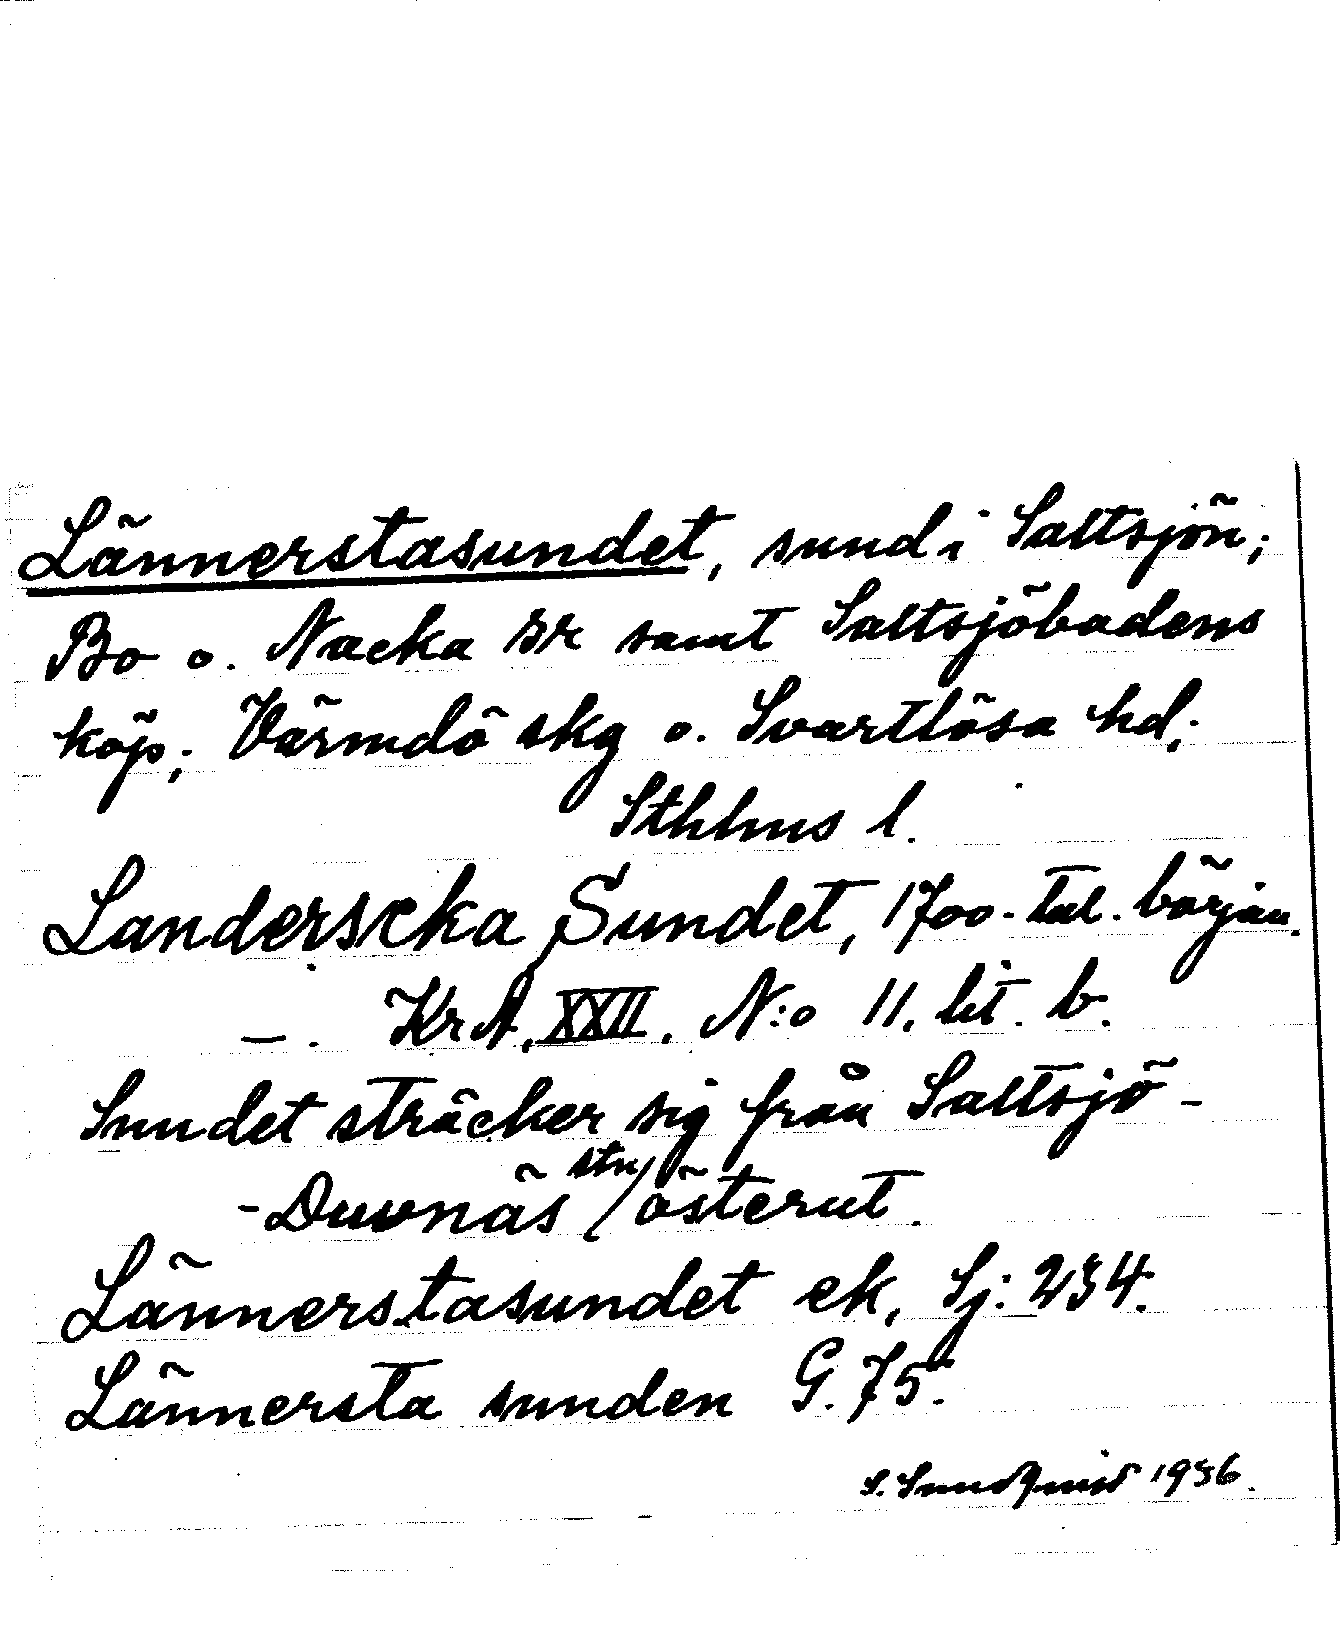 Lännerstasundet, sund i Saltsjön;
Bo o. Nacka snr samt Saltsjöbadens
köp; Värmdö skg o. Svartlösa hd;
Sthlms l.
Landerscka Sundet, 1700-tal. början.
—. KrA, XXII. N:o 11. lit. b.
Sundet sträcker sig från Saltsjö-
-Duvnäs stn/österut.
Lännerstasundet ek. Sj: 234.
Lännersta sunden G. 75.
S. Sundqvist 1936.